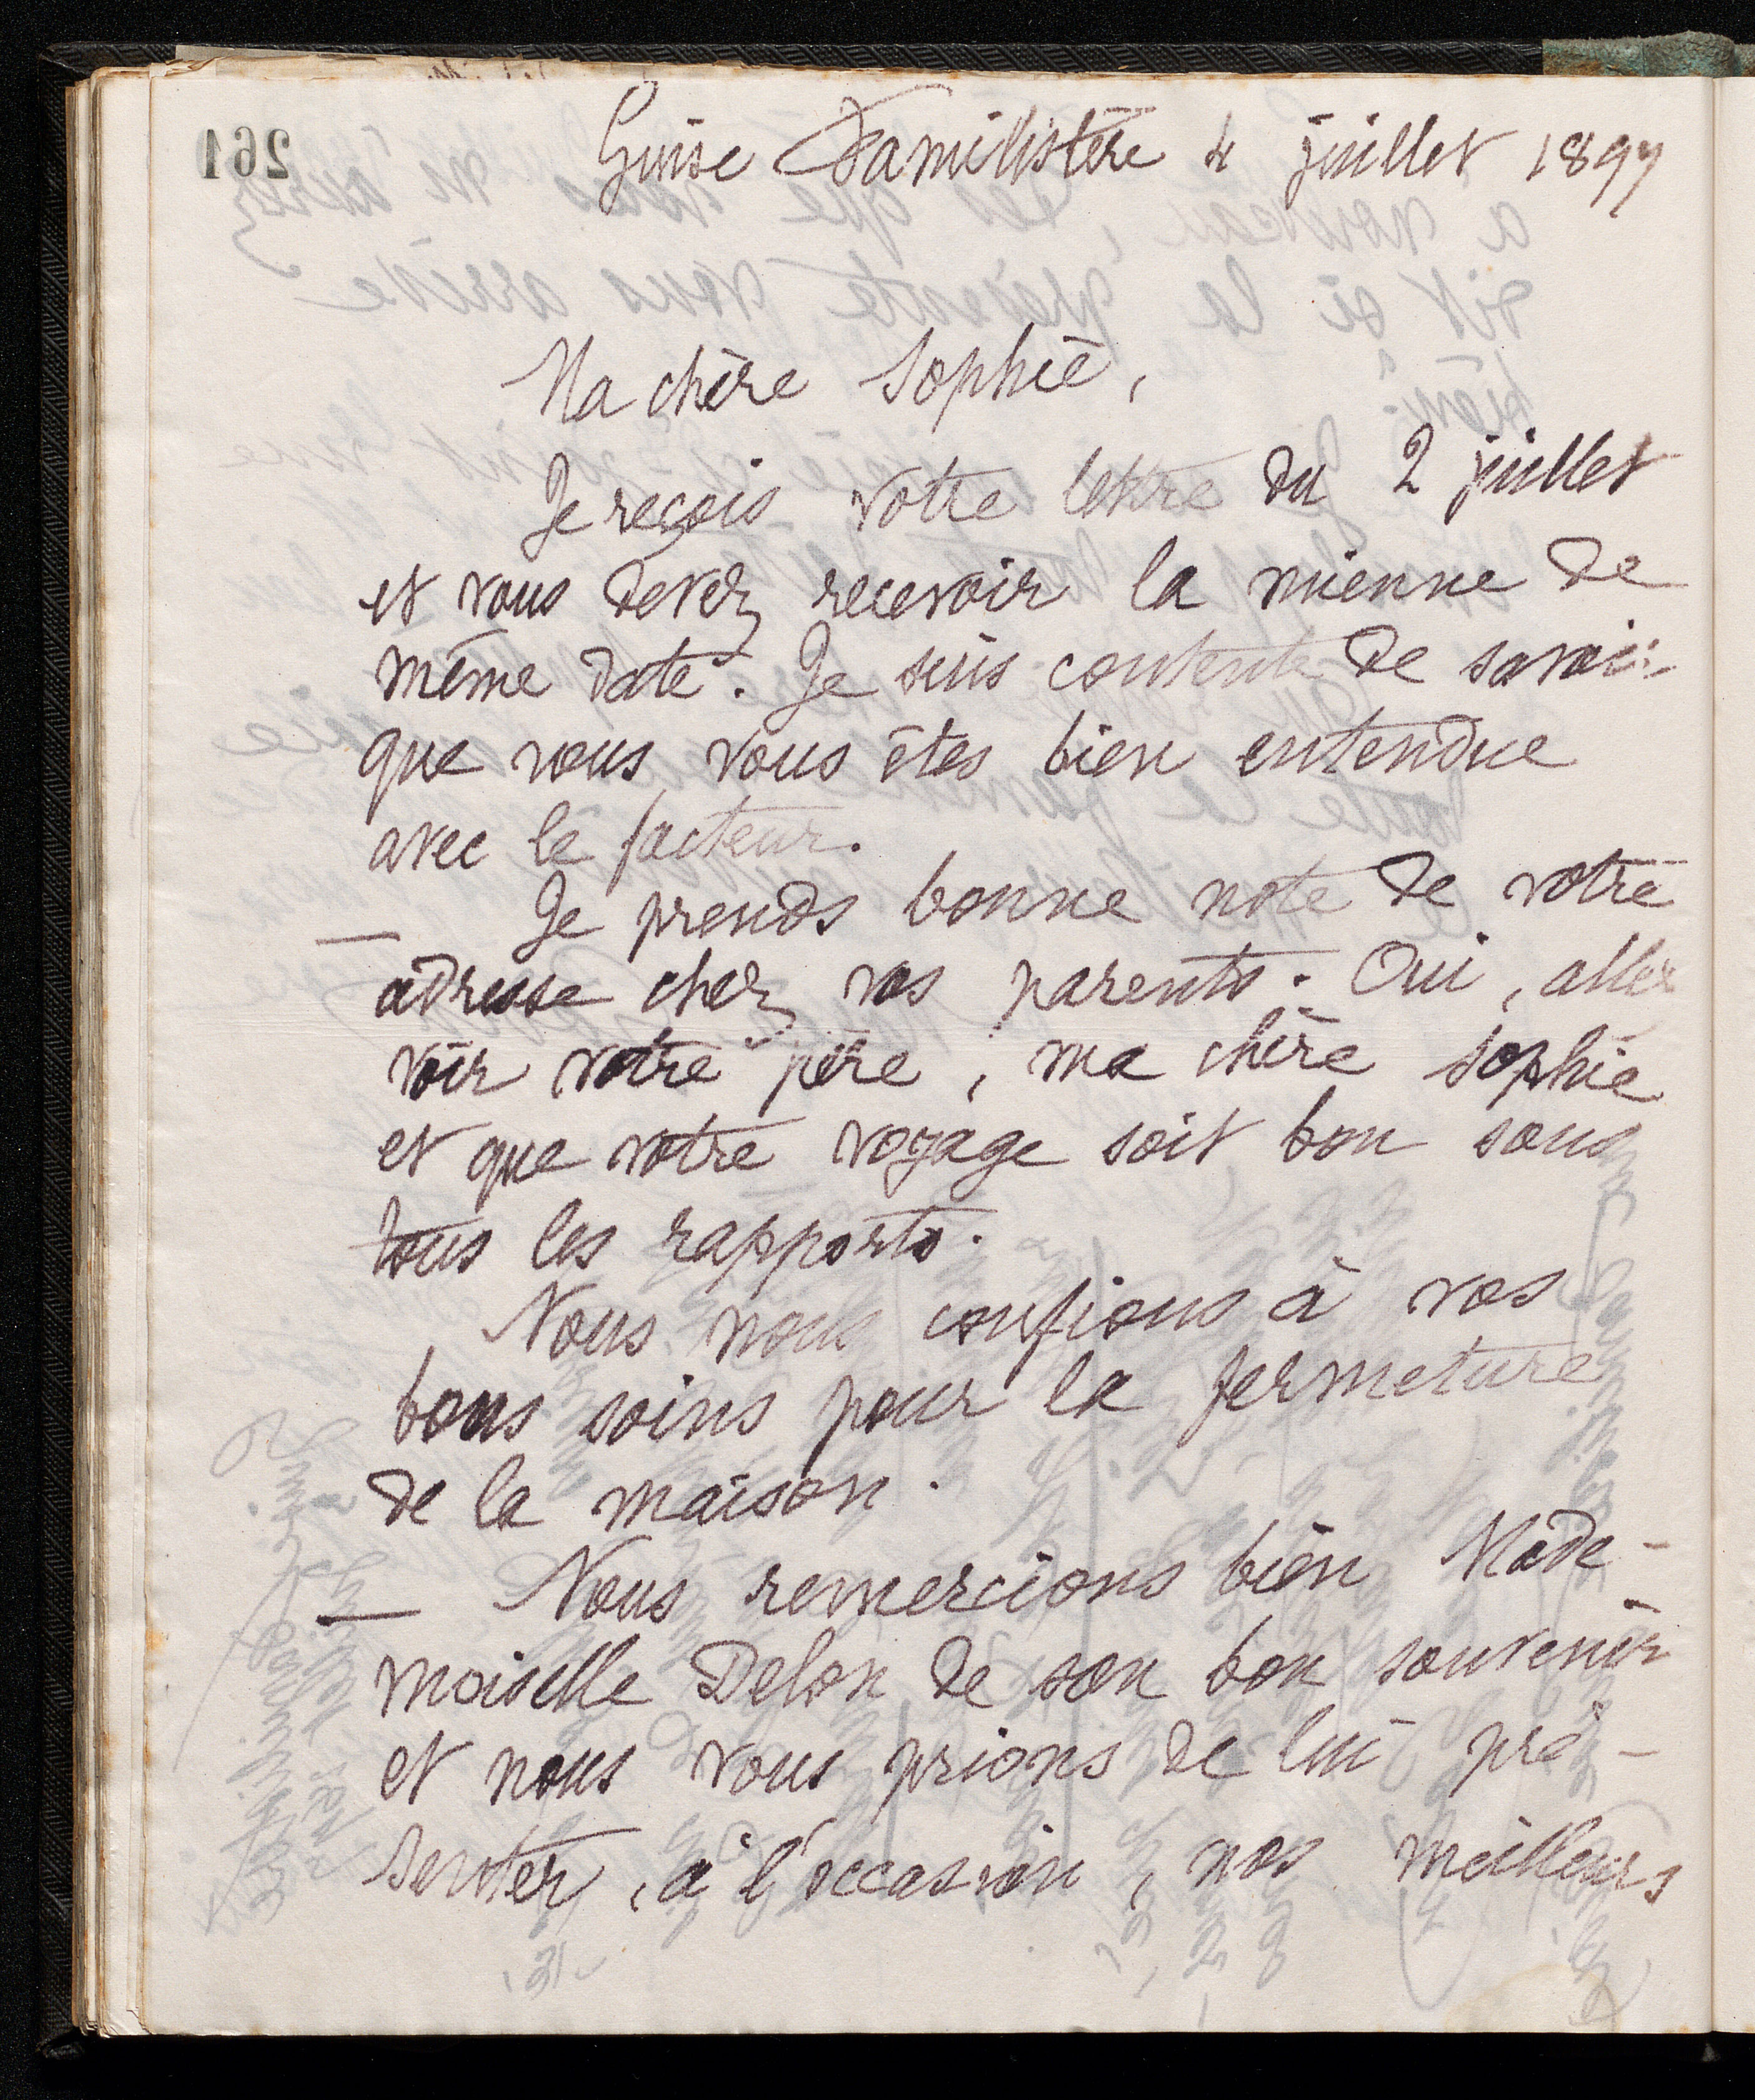 261
Guise Familistère 4 juillet 1897
Ma chère Sophie,
Je reçois votre lettre du 2 juillet
et vous devez recevoir la mienne de
même date. Je suis contente de savoir
que vous vous êtes bien entendue
avec le facteur.
— Je prends bonne note de votre
adresse chez vos parents. Oui, allez
voir votre père, ma chère Sophie
et que votre voyage soit bon sous
tous les rapports.
Nous nous confions à vos
bons soins pour la fermeture
de la maison.
— Nous remercions bien Made-
moiselle Delon de son bon souvenir
et nous vous prions de lui pré-
senter, à l'occasion, nos meilleurs